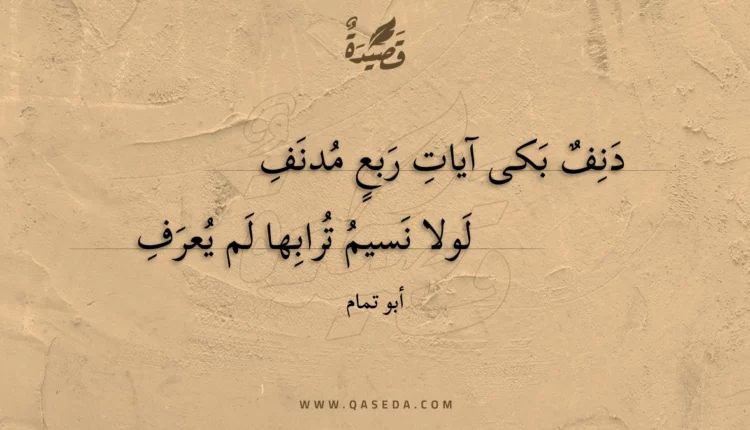 قَصِيْدَةٌ
دَنِفٌ بَكى آياتِ رَبعٍ مُدنَفِ
لَولا نَسيمُ تُرابِها لَم يُعرَفِ
أبو تمام
WWW.QASEDA.COM